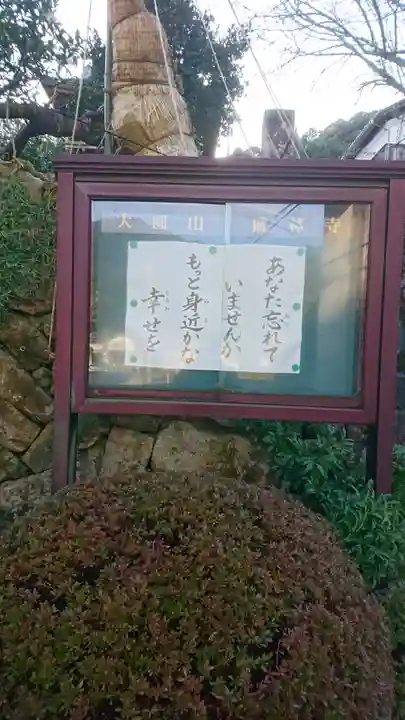 大圓山
寺
あなた忘れて
いませんか
もっと身近かな
幸せを